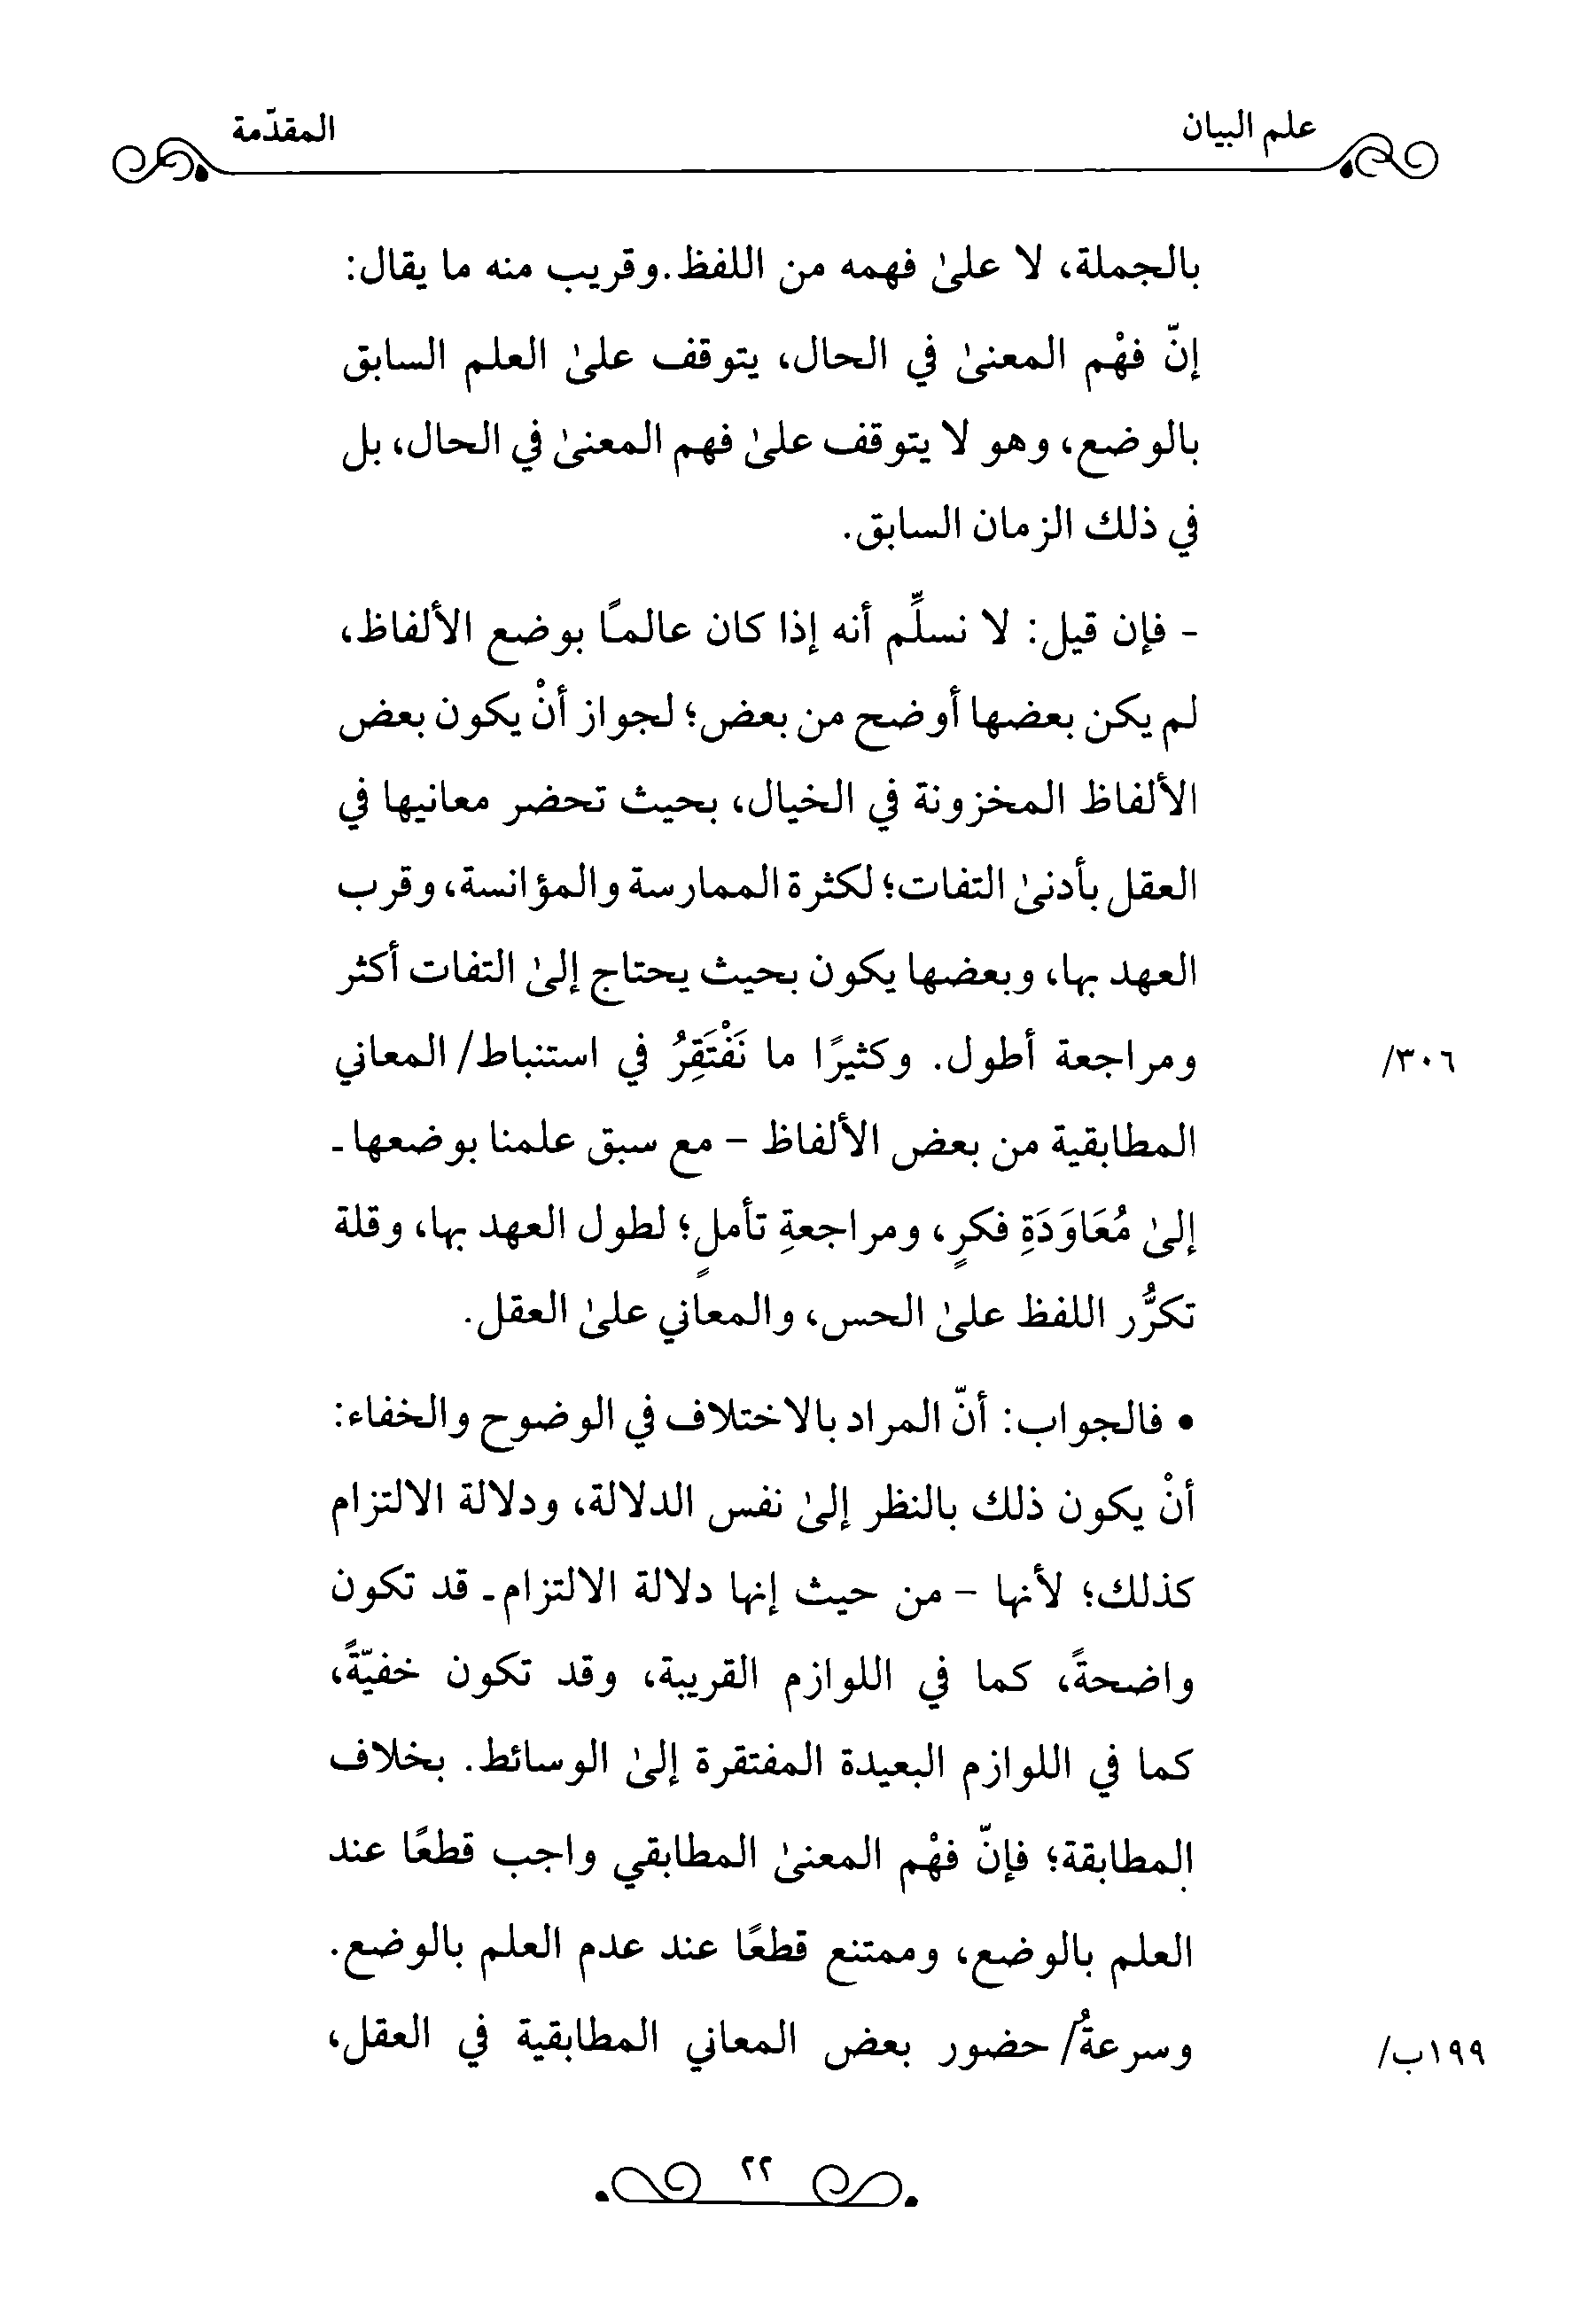 علم البيان
المقدّمة
بالجملة، لا علىٰ فهمه من اللفظ.وقريب منه ما يقال:
إنّ فهْم المعنىٰ في الحال، يتوقف علىٰ العلم السابق
بالوضع، وهو لا يتوقف علىٰ فهم المعنىٰ في الحال، بل
في ذلك الزمان السابق.
- فإن قيل: لا نسلِّم أنه إذا كان عالمـًا بوضع الألفاظ،
لم يكن بعضها أوضح من بعض؛ لجواز أنْ يكون بعض
الألفاظ المخزونة في الخيال، بحيث تحضر معانيها في
العقل بأدنىٰ التفات؛ لكثرة الممارسة والمؤانسة، وقرب
العهد بها، وبعضها يكون بحيث يحتاج إلىٰ التفات أكثر
ومراجعة أطول. وكثيرًا ما نَفْتَقِرُ في استنباط/ المعاني
٣٠٦/
المطابقية من بعض الألفاظ - مع سبق علمنا بوضعها -
إلىٰ مُعَاوَدَةِ فكرٍ، ومراجعةِ تأملٍ؛ لطول العهد بها، وقلة
تكرُّر اللفظ علىٰ الحس، والمعاني علىٰ العقل.
• فالجواب: أنّ المراد بالاختلاف في الوضوح والخفاء:
أنْ يكون ذلك بالنظر إلىٰ نفس الدلالة، ودلالة الالتزام
كذلك؛ لأنها - من حيث إنها دلالة الالتزام - قد تكون
واضحةً، كما في اللوازم القريبة، وقد تكون خفيّةً،
كما في اللوازم البعيدة المفتقرة إلىٰ الوسائط. بخلاف
المطابقة؛ فإنّ فهْم المعنىٰ المطابقي واجب قطعًا عند
العلم بالوضع، وممتنع قطعًا عند عدم العلم بالوضع.
وسرعةُ/ حضور بعض المعاني المطابقية في العقل،
١٩٩ب/
٢٢